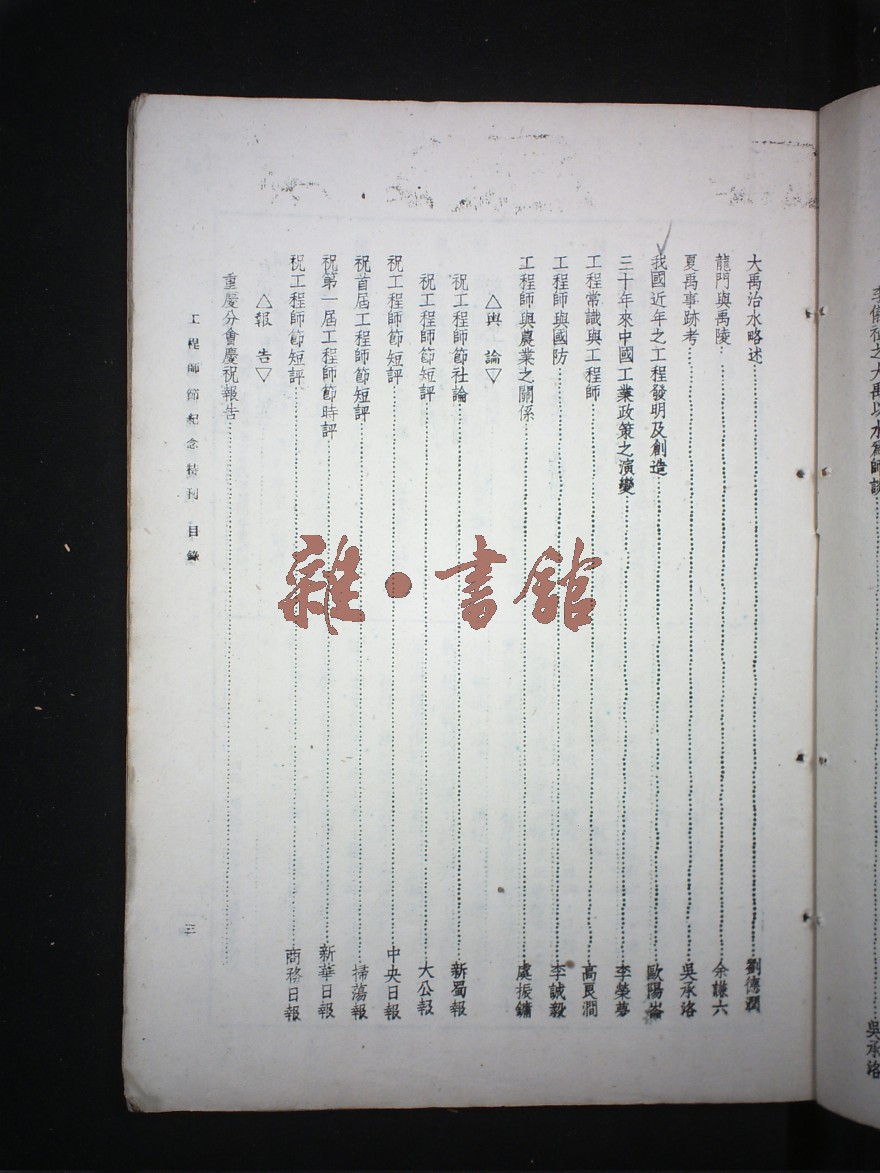 李儀祉之大禹以水為師談……吳承洛
大禹治水略述……劉傳潤
龍門與禹陵……余謙六
夏禹事跡考……吳承洛
我國近年之工程發明及創造……歐陽崙
三十年來中國工業政策之演變……李榮夢
工程常識與工程師……高良潤
工程師與國防……李誠毅
工程師與農業之關係……虞振鏞
△輿　論▽
祝工程師節社論……新蜀報
祝工程師節短評……大公報
祝工程師節短評……中央日報
祝首屆工程師節短評……掃蕩報
祝第一屆工程師節時評……新華日報
祝工程師節短評……商務日報
△報　告▽
重慶分會慶祝報告……
工程師節紀念特刊　目錄　三
雜·書館